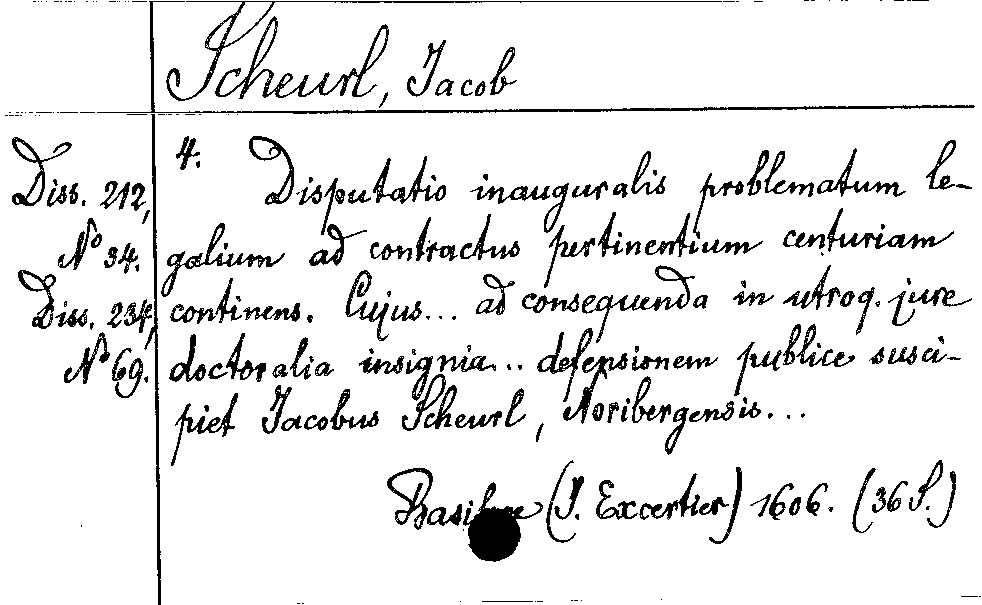 Scheurl, Jacob
4. Disputatio inauguralis problematum le-
Diss. 212,
No 34. galium ad contractus pertinentium centuriam
Diss. 234, continens. Cujus... ad consequenda in utroq. jure
No 69. doctoralia insignia... defensionem publice susci-
piet Jacobus Scheurl, Noribergensis...
Basileae (J. Excertier) 1606. (36 S.)